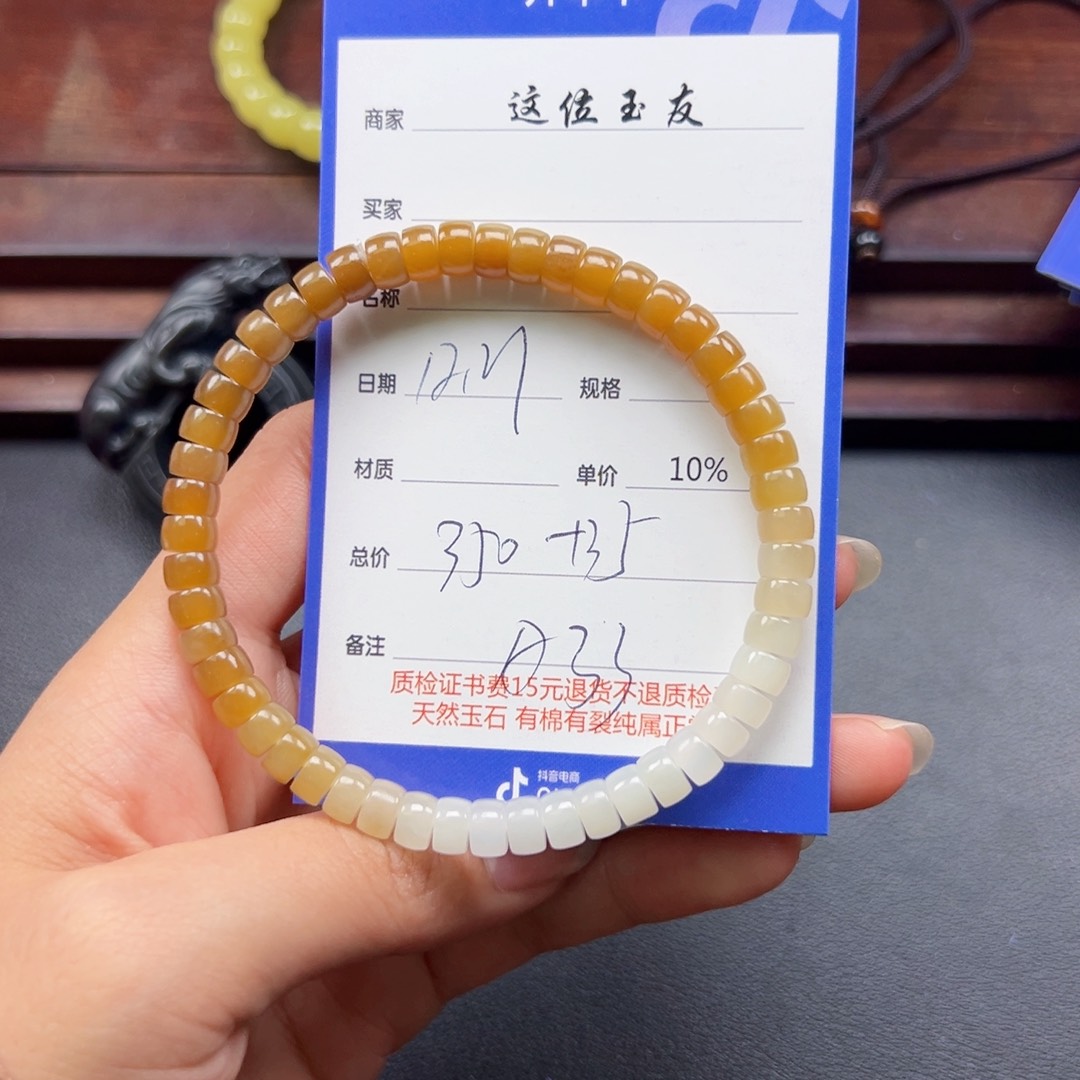 商家 这位玉友
买家
名称
日期 规格
材质 单价 10%
总价 350 +35
备注 A33
质检证书费15元退货不退质检
天然玉石 有棉有裂纯属正
抖音电商